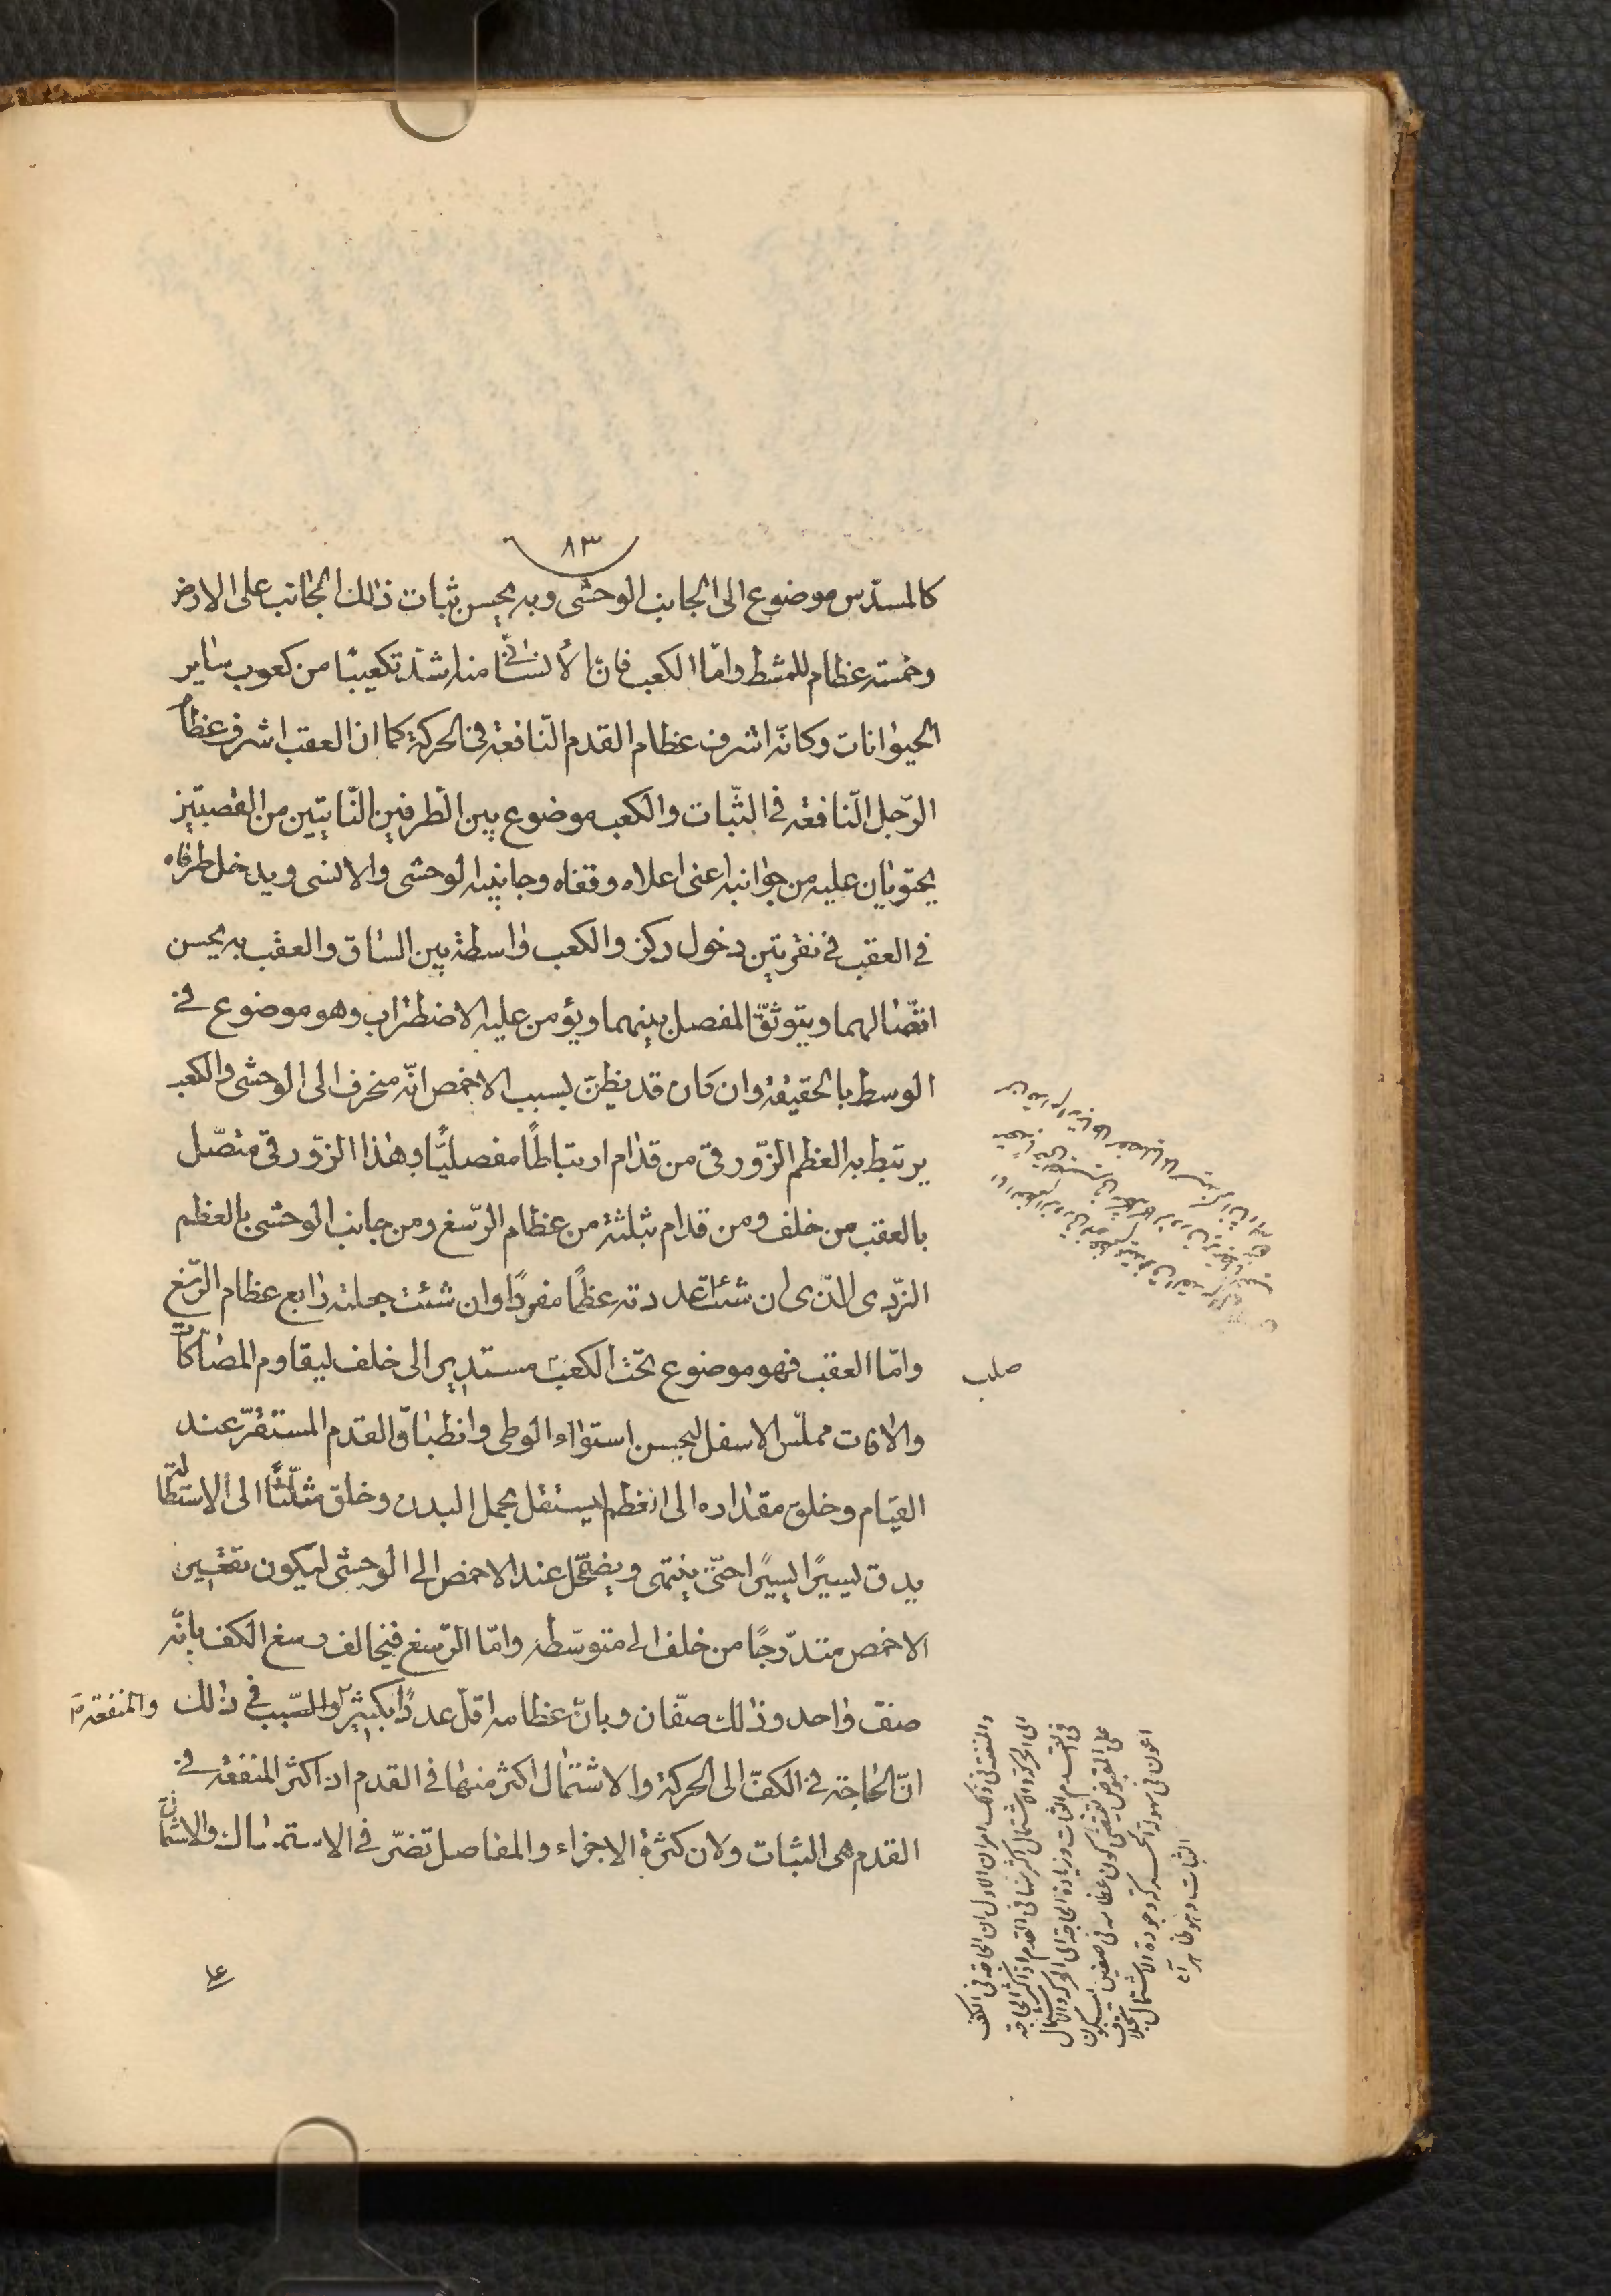 ٨٣
كالمسدّس موضوع الى الجانب الوحشى وبه يحسن ثبات ذلك الجانب على الارض
وخمسة عظام للمشط وامّا الكعب فانّ الأنسانى منه اشدّ تكعيبًا من كعوب ساير
الحيوانات وكانّه اشرف عظام القدم النّافعة فى الحركة كما ان العقب اشرف عظام
الرّجل النّافعة فى الثّبات والكعب موضوع بين الطرفين النّاتيين من القصبتين
يحتويان عليه من جوانبه اعنى اعلاه وقفاه وجانبيه الوحشى والانسى ويدخل طرفاه
فى العقب فى نقرتين دخول ركز والكعب واسطة بين الساق والعقب به يحسن
اتّصالهما ويتوثقّ المفصل بينهما ويؤمن عليه الاضطراب وهو موضوع فى
الوسط بالحقيقة وان كان قد يظنّ بسبب الاخمص انّه منحرف الى الوحشى والكعب
يرتبط به العظم الزّورقى من قدّام ارتباطًا مفصليًّا وهذا الزّورقى متصّل
بالعقب من خلف ومن قدام بثلثة من عظام الرّسغ ومن جانب الوحشى بالعظم
النّردى الذّى ان شئت عددته عظمًا مفردًا وان شئت جعلته رابع عظام الرّسغ
وامّا العقب فهو موضوع تحت الكعب مستدير الى خلف ليقاوم المصاكّات
صلب
والافات مملّس الاسفل ليحسن استواء الوطى وانطباق القدم المستقرّ عند
القيام وخلق مقداره الى العظم ليستقل بحمل البدن وخلق مثلّثًا الى الاستطالة
يدق يسيرًا يسيرًا حتّى ينتهى ويضمّحل عند الاخمص الى الوحشى ليكون تقعير
الاخمص متدرّجًا من خلف الى متوسّطه وامّا الرّسغ فيخالف رسغ الكف بانّه
صفّ واحد وذلك صفّان وبانّ عظامه اقلّ عددًا بكثير والسّبب فى ذلك
والمنفعة
انّ الحاجة فى الكفّ الى الحركة والاشتمال اكثر منها فى القدم اذ اكثر المنفعة فى
القدم هى الثبات ولان كثرة الاجزاء والمفاصل تضرّ فى الاستمساك والاشتمال
والمنفعة فى ذلك امران الاول ان الحاجة فى الكف
الى الحركة والاشتمال اكثر منها فى القدم اذ اكثر الحاجة
فى القدم الثبات وزيادة الحاجة الى الحركة والاشتمال
على المقبوض يقتضى كون عظامه فى صفين ليكون
اعون فى سهولة الحركة وجودة الاشتمال بخلاف
الثبات وهو ظاهر